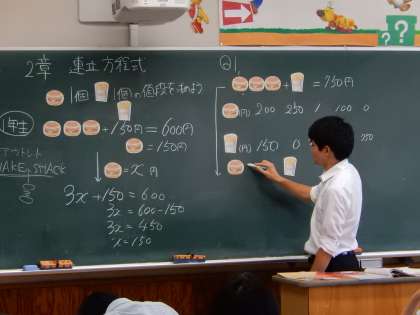 2章 連立方程式
1個 1個の値段を求めよう
1年生
+150円=600円
=150円
アウトレット
SHAKE SHACK
=x円
3x+150=600
3x=600-150
3x=450
x=150
Q1.
+ =750円
(円) 200 250 1 100 0
(円) 150 0 750
? ?